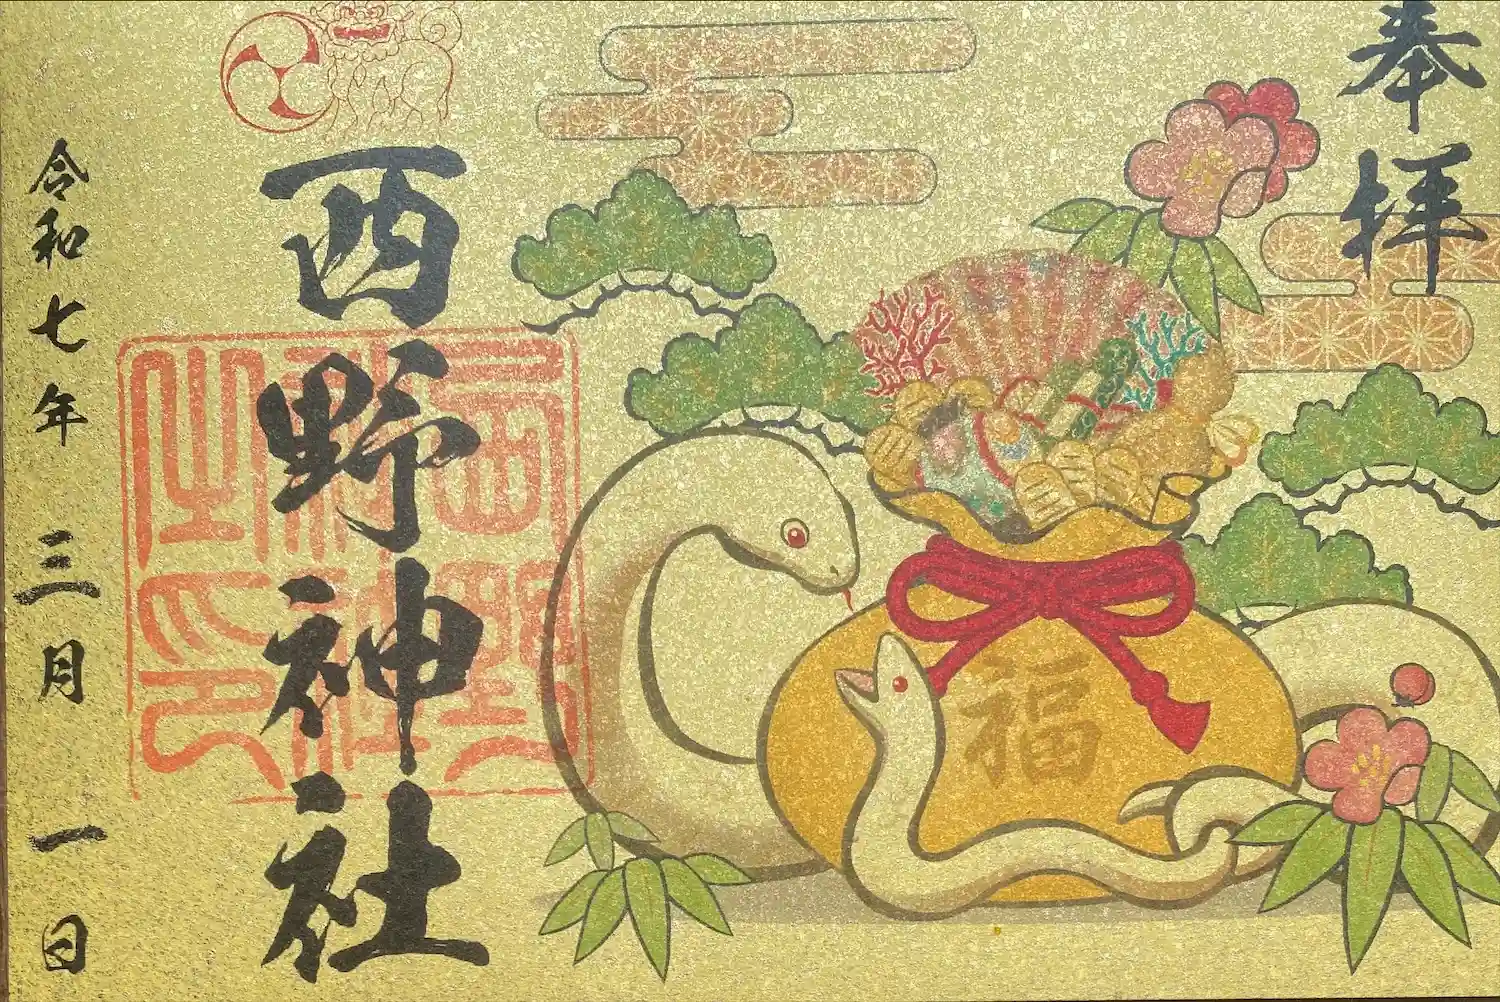 奉拝
西野神社
令和七年三月一日
福
西野神社之印